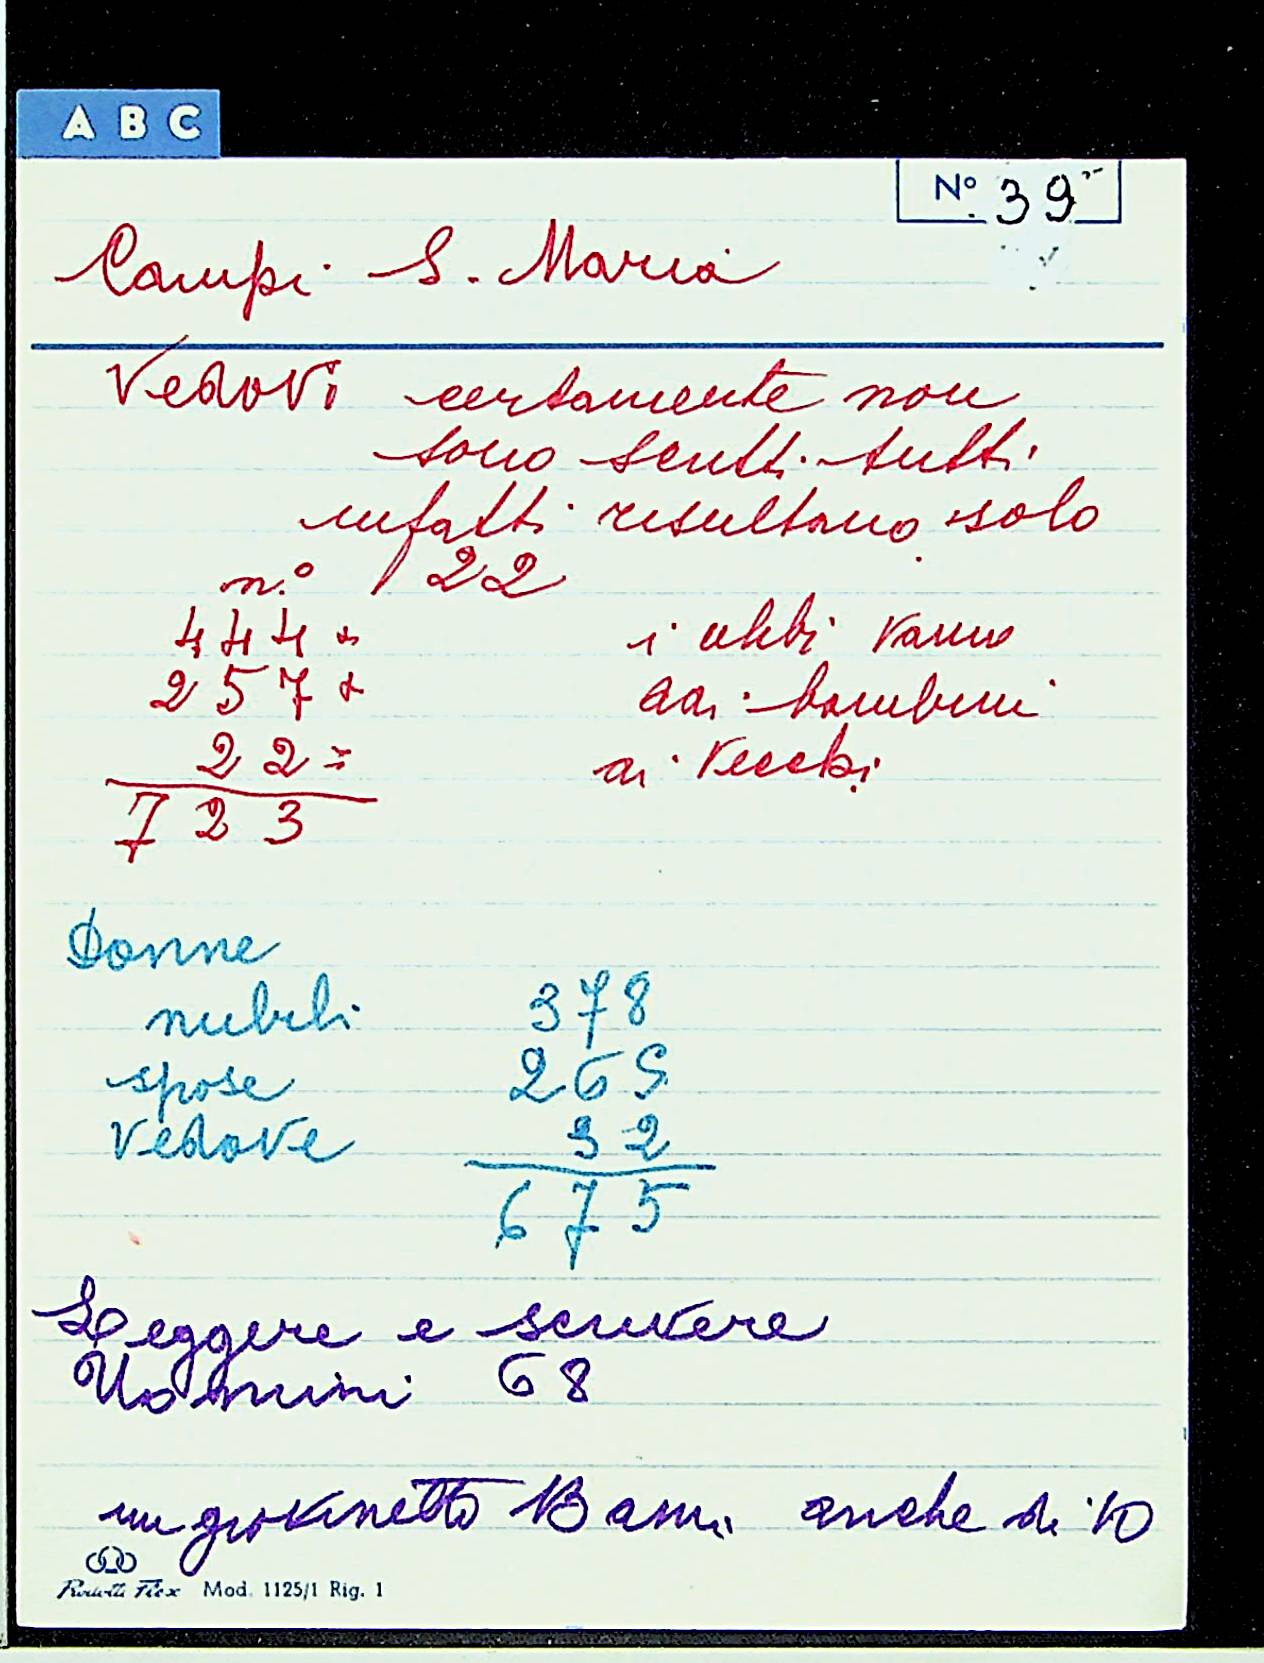 A B C
Nº 39
Campi S. Maria
Vedovi certamente non
sono scritti tutti
infatti risultano solo
n.º 22
444 +
i celibi vanno
257 +
dai bambini
22 =
ai vecchi
723
Donne
nubili 378
spose 265
vedove 32
675
Leggere e scrivere
Uomini 68
un giovinetto 13 anni anche di 10
Rotolit Flex Mod. 1125/1 Rig. 1